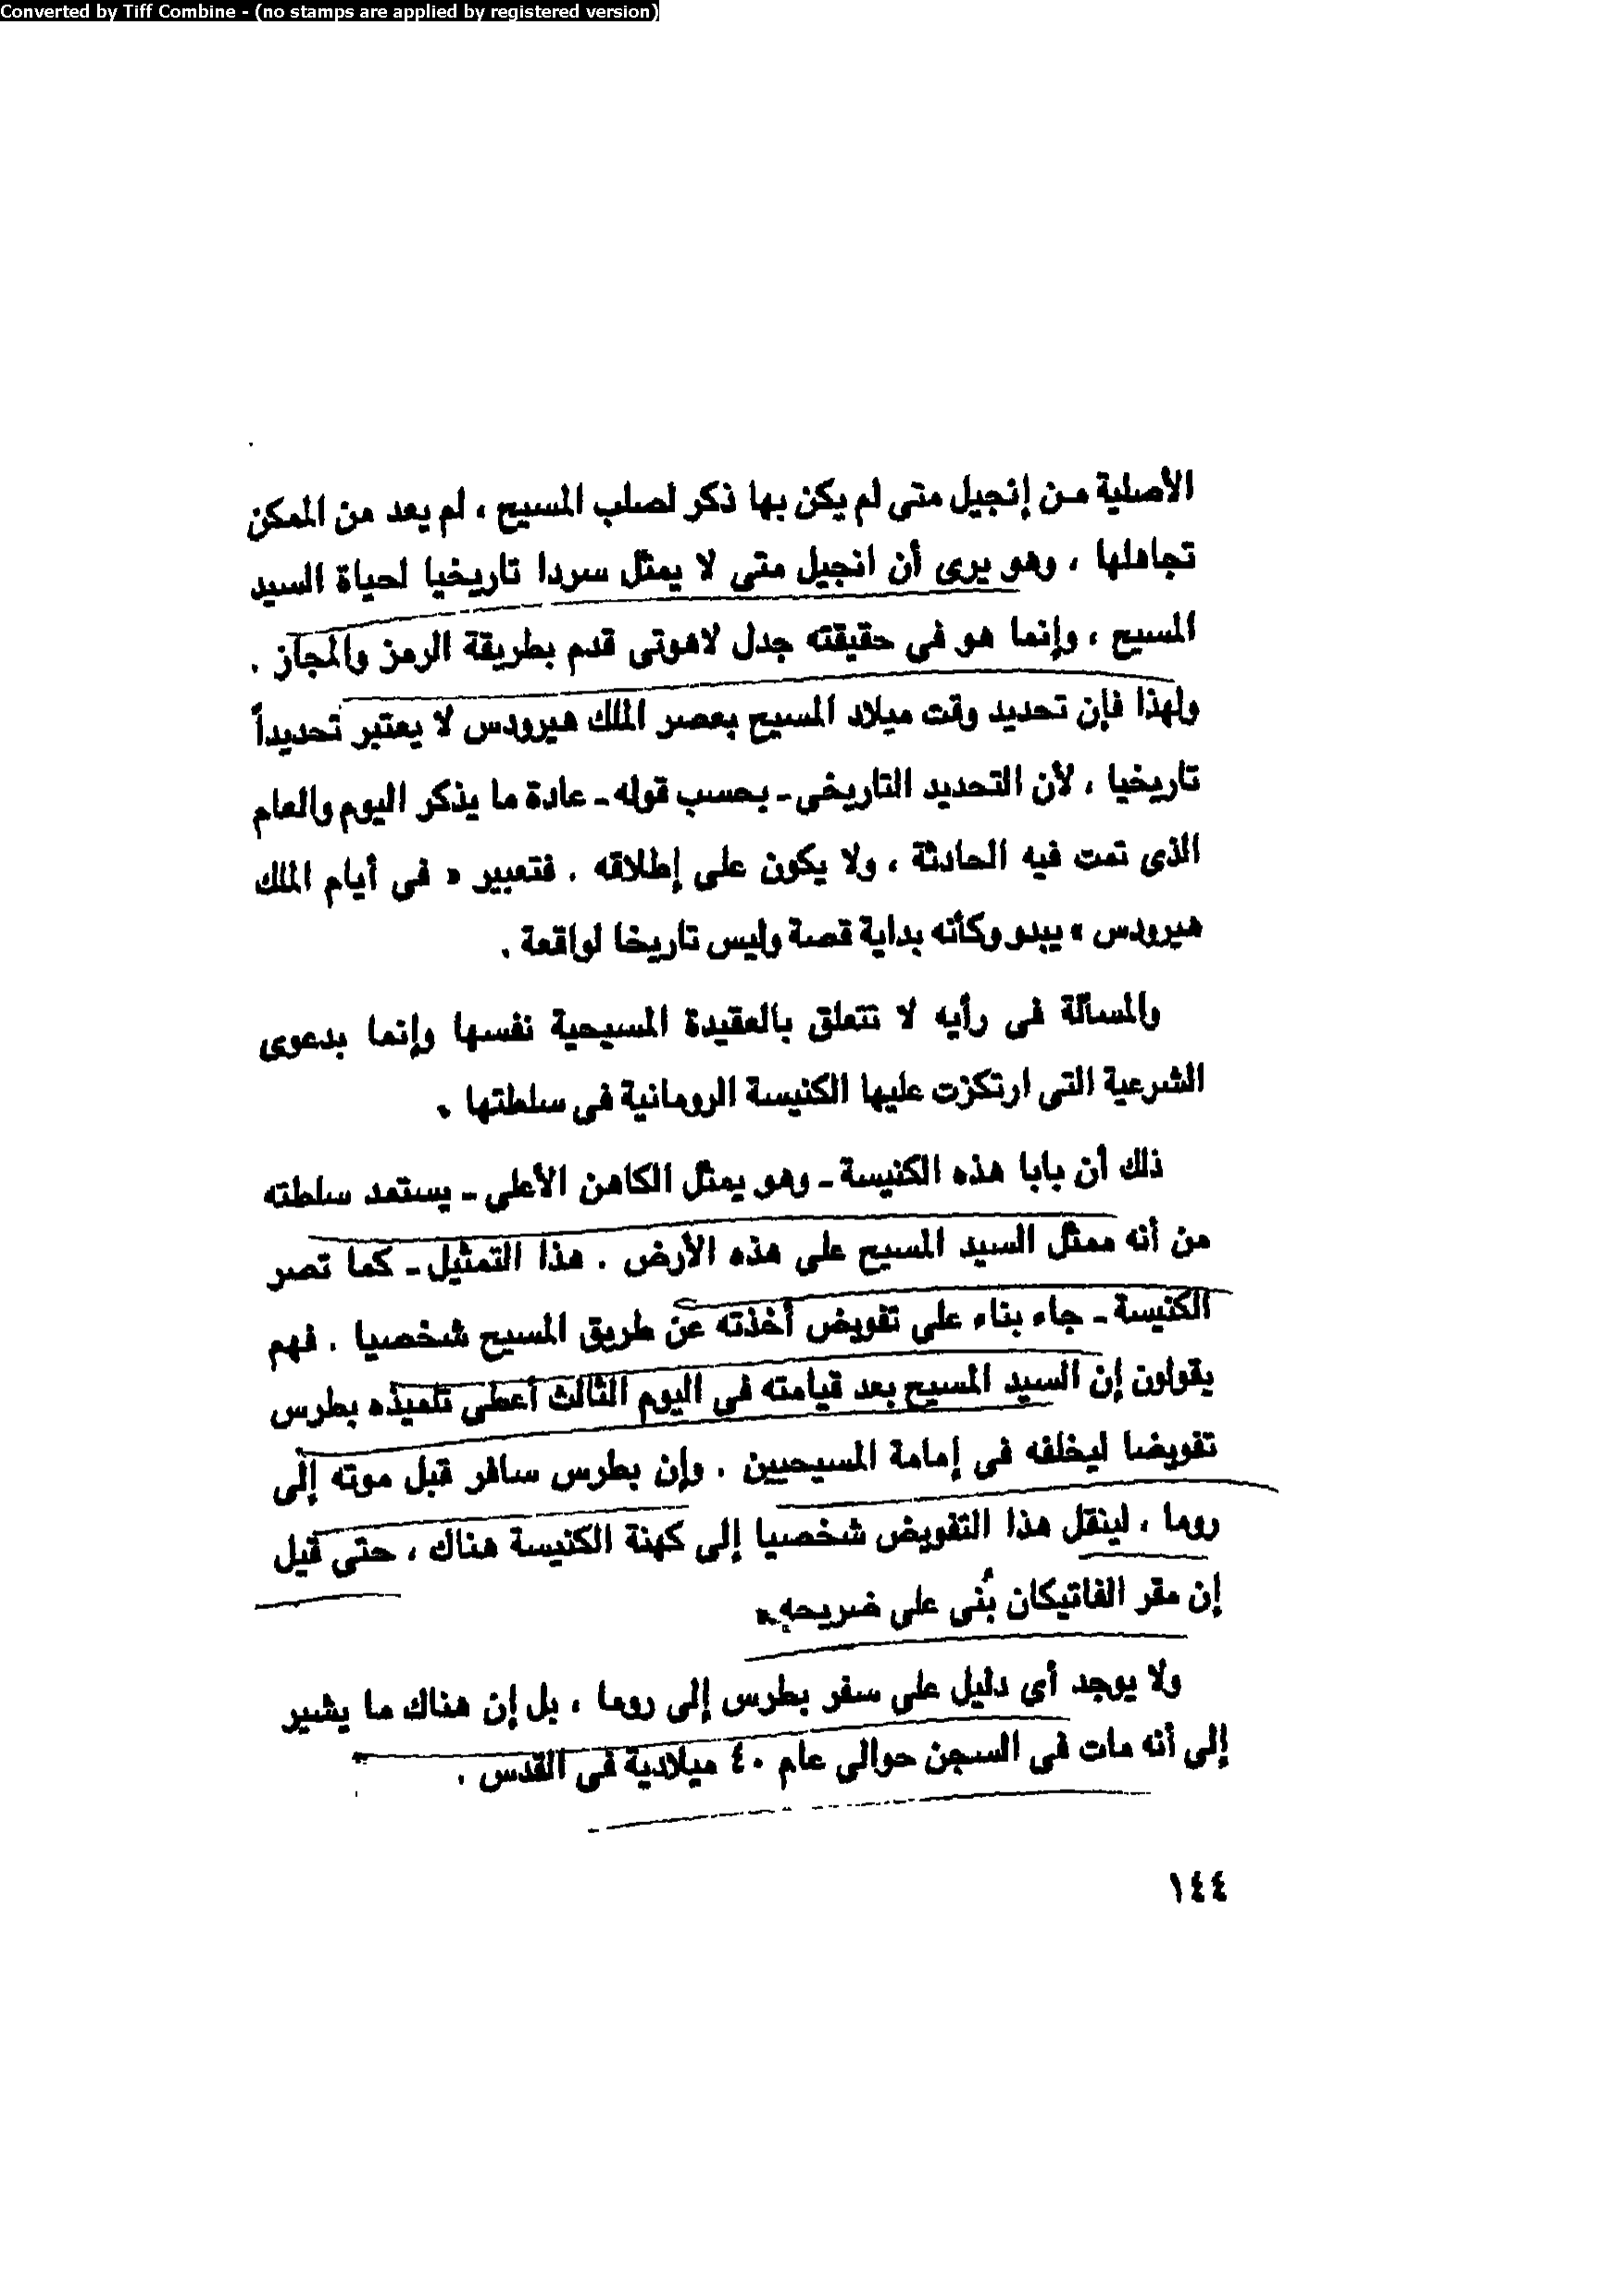 Converted by Tiff Combine - (no stamps are applied by registered version)
الأصلية مـن إنجيل متى لم يكن بها ذكر لصلب المسيح ، لم يعد من الممكن
تجاهلها ، وهو يرى أن انجيل متى لا يمثل سردا تاريخيا لحياة السيد
المسيح ، وإنما هو فى حقيقته جدل لاهوتى قدم بطريقة الرمز والمجاز .
ولهذا فإن تحديد وقت ميلاد المسيح بعصر الملك هيرودس لا يعتبر تحديداً
تاريخيا ، لأن التحديد التاريخى - بحسب قوله - عادة ما يذكر اليوم والعام
الذى تمت فيه الحادثة ، ولا يكون على إطلاقه . فتعبير « فى أيام الملك
هيرودس » يبدو وكأنه بداية قصة وليس تاريخا لواقعة .
والمسألة فى رأيه لا تتعلق بالعقيدة المسيحية نفسها وإنما بدعوى
الشرعية التى ارتكزت عليها الكنيسة الرومانية فى سلطتها .
ذلك أن بابا هذه الكنيسة - وهو يمثل الكاهن الأعلى - يستمد سلطته
من أنه ممثل السيد المسيح على هذه الأرض . هذا التمثيل - كما تصر
الكنيسة - جاء بناء على تفويض أخذته عن طريق المسيح شخصيا . فهم
يقولون إن السيد المسيح بعد قيامته فى اليوم الثالث أعطى تلميذه بطرس
تفويضا ليخلفه فى إمامة المسيحيين . وإن بطرس سافر قبل موته إلى
روما ، لينقل هذا التفويض شخصيا إلى كهنة الكنيسة هناك ، حتى قيل
إن مقر الفاتيكان بُنى على ضريحه .
ولا يوجد أي دليل على سفر بطرس إلى روما ، بل إن هناك ما يشير
إلى أنه مات فى السجن حوالى عام ٤٠ ميلادية فى القدس .
١٤٤